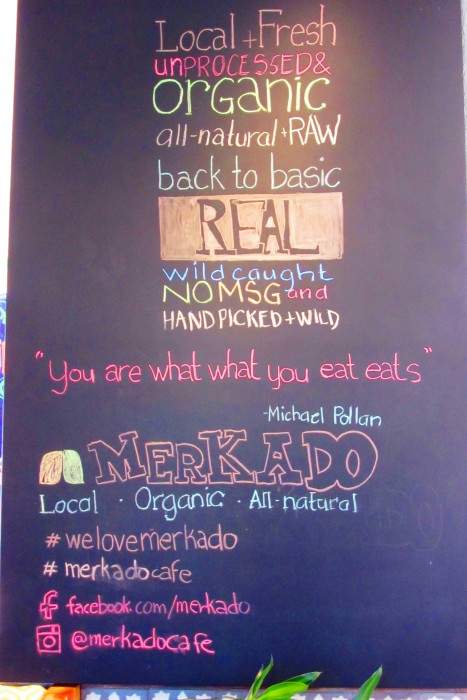 Local + Fresh
unPROCESSED &
ORGANIC
all-natural + RAW
back to basic
REAL
wild caught
NO MSG and
HAND PICKED + WILD
"You are what what you eat eats"
-Michael Pollan
MERKADO
Local · Organic · All-natural
#welovemerkado
# merkadocafe
facebook.com/merkado
@merkadocafe